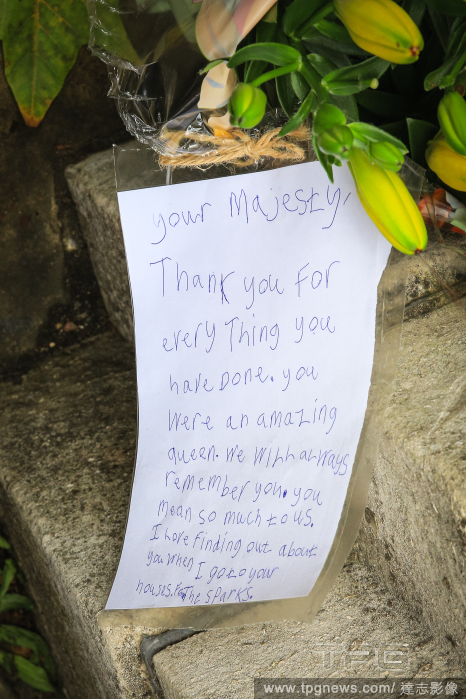 your Majesty,
Thank you For
every Thing you
have DONE. you
Were an amazing
queen. We will always
remember you. you
mean so much to us.
I Love finding out about
you when I go to your
houses.
The SPARKS.
TPG
www.tpgnews.com/達志影像